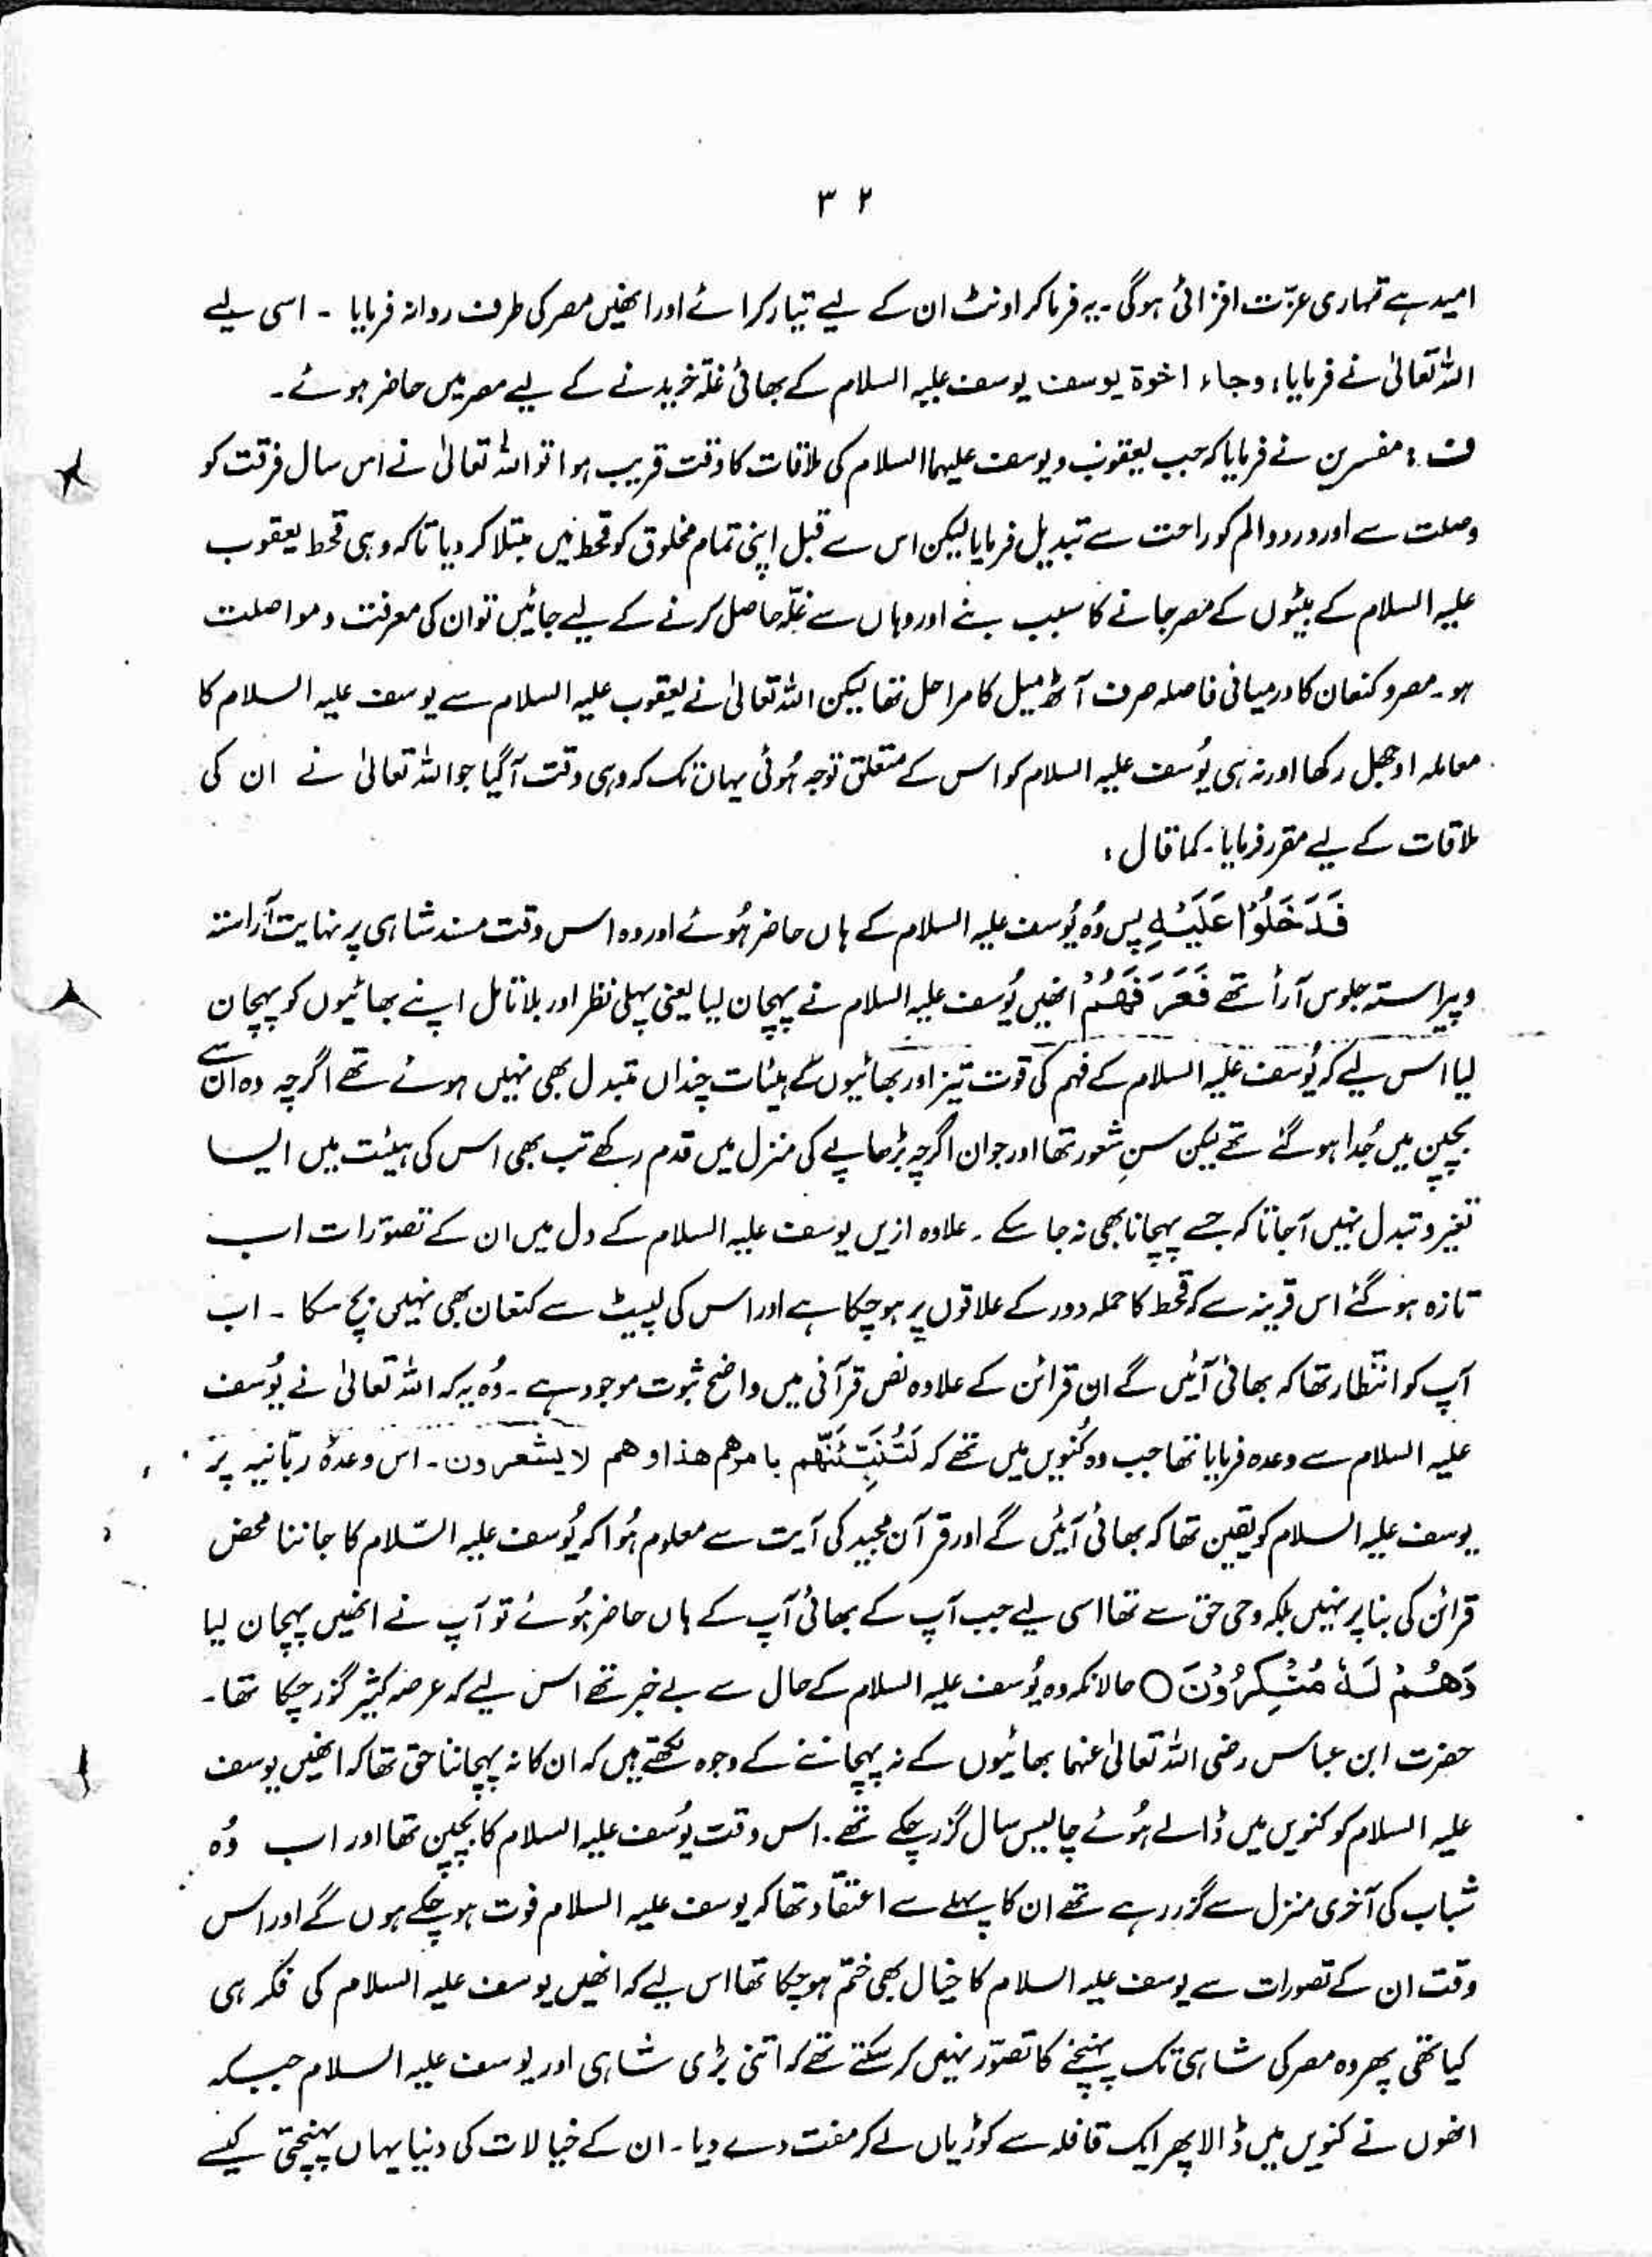 ۳۲
امید ہے تمہاری عزّت افزائی ہوگی۔ یہ فرما کر اونٹ ان کے لیے تیار کرائے اور انھیں مصر کی طرف روانہ فرمایا ۔ اسی لیے
اللہ تعالیٰ نے فرمایا؛ وجاء اخوۃ یوسف یوسف علیہ السلام کے بھائی غلّہ خریدنے کے لیے مصر میں حاضر ہوئے۔
ف : مفسرین نے فرمایا کہ جب یعقوب و یوسف علیہما السلام کی ملاقات کا وقت قریب ہوا تو اللہ تعالیٰ نے اس سال فرقت کو
وصلت سے اور درد و الم کو راحت سے تبدیل فرمایا لیکن اس سے قبل اپنی تمام مخلوق کو قحط میں مبتلا کر دیا تاکہ وہی قحط یعقوب
علیہ السلام کے بیٹوں کے مصر جانے کا سبب بنے اور وہاں سے غلّہ حاصل کرنے کے لیے جائیں تو ان کی معرفت و مواصلت
ہو۔ مصر و کنعان کا درمیانی فاصلہ صرف آٹھ میل کا مراحل تھا لیکن اللہ تعالیٰ نے یعقوب علیہ السلام سے یوسف علیہ السلام کا
معاملہ اوجھل رکھا اور نہ ہی یُوسف علیہ السلام کو اس کے متعلق توجہ ہُوئی یہاں تک کہ وہی وقت آگیا جو اللہ تعالیٰ نے ان کی
ملاقات کے لیے مقرر فرمایا۔ کما قال :
فَدَخَلُوْا عَلَيْهِ پس وُہ یُوسف علیہ السلام کے ہاں حاضر ہُوئے اور وہ اس وقت مسند شاہی پر نہایت آراستہ
و پیراستہ جلوس آرأ تھے فَعَرَفَهُمْ انھیں یُوسف علیہ السلام نے پہچان لیا یعنی پہلی نظر اور بلا تامل اپنے بھائیوں کو پہچان
لیا اس لیے کہ یُوسف علیہ السلام کے فہم کی قوت تیز اور بھائیوں کے ہیئات چنداں متبدل بھی نہیں ہوئے تھے اگرچہ وہ ان سے
بچپن میں جُدا ہو گئے تھے لیکن سنِ شعور تھا اور جوان اگرچہ بڑھاپے کی منزل میں قدم رکھے تب بھی اس کی ہیئت میں ایسا
تغیر و تبدل نہیں آجاتا کہ جسے پہچانا بھی نہ جا سکے ۔ علاوہ ازیں یوسف علیہ السلام کے دل میں ان کے تصوّرات اب
تازہ ہو گئے اس قرینہ سے کہ قحط کا حملہ دور کے علاقوں پر ہو چکا ہے اور اس کی لپیٹ سے کنعان بھی نہیں بچ سکا ۔ اب
آپ کو انتظار تھا کہ بھائی آئیں گے ان قرائن کے علاوہ نص قرآنی میں واضح ثبوت موجود ہے ۔ وُہ یہ کہ اللہ تعالیٰ نے یُوسف
علیہ السلام سے وعدہ فرمایا تھا جب وہ کُنویں میں تھے کہ لَتُنَبِّئَنَّهُم بامرهم هذا وهم لا يشعرون۔ اس وعدۂ ربّانیہ پر
یوسف علیہ السلام کو یقین تھا کہ بھائی آئیں گے اور قرآن مجید کی آیت سے معلوم ہُوا کہ یُوسف علیہ السّلام کا جاننا محض
قرائن کی بنا پر نہیں بلکہ وحی حق سے تھا اسی لیے جب آپ کے بھائی آپ کے ہاں حاضر ہُوئے تو آپ نے انھیں پہچان لیا
وَهُمْ لَهٗ مُنْكِرُوْنَ ○ حالانکہ وہ یُوسف علیہ السلام کے حال سے بے خبر تھے اس لیے کہ عرصہ کثیر گزر چکا تھا۔
حضرت ابن عباس رضی اللہ تعالیٰ عنہما بھائیوں کے نہ پہچاننے کے وجوہ لکھتے ہیں کہ ان کا نہ پہچاننا حق تھا کہ انھیں یوسف
علیہ السلام کو کنویں میں ڈالے ہُوئے چالیس سال گزر چکے تھے۔ اس وقت یُوسف علیہ السلام کا بچپن تھا اور اب وُہ
شباب کی آخری منزل سے گزر رہے تھے ان کا پہلے سے اعتقاد تھا کہ یوسف علیہ السلام فوت ہو چکے ہوں گے اور اس
وقت ان کے تصورات سے یوسف علیہ السلام کا خیال بھی ختم ہو چکا تھا اس لیے کہ انھیں یوسف علیہ السلام کی فکر ہی
کیا تھی پھر وہ مصر کی شاہی تک پہنچنے کا تصوّر نہیں کر سکتے تھے کہ اتنی بڑی شاہی اور یوسف علیہ السلام جبکہ
انھوں نے کنویں میں ڈالا پھر ایک قافلہ سے کوڑیاں لے کر مفت دے دیا۔ ان کے خیالات کی دنیا یہاں پہنچتی کیسے